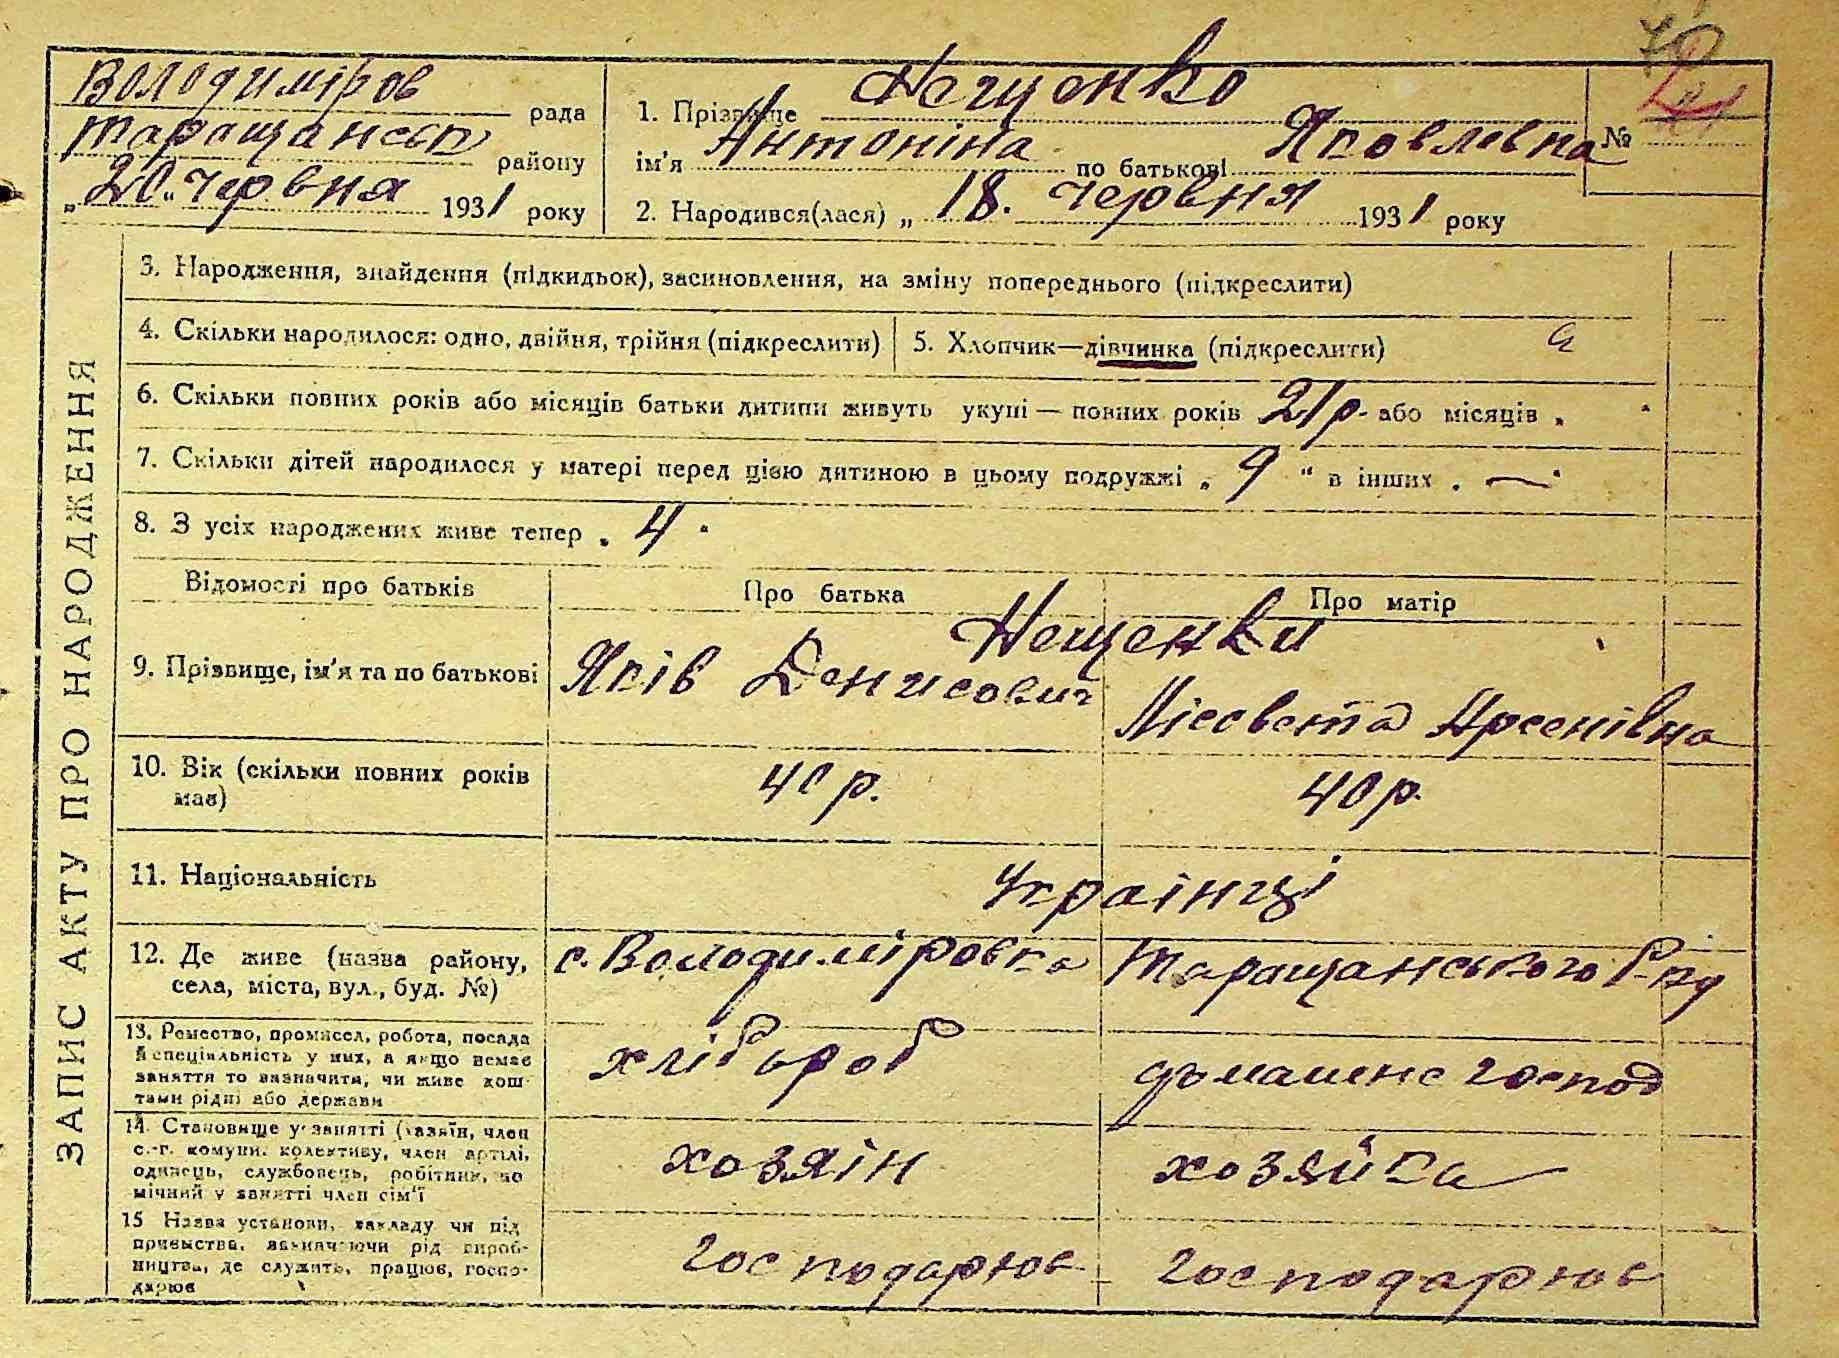 Володиміров рада
Таращанськ району
„20“ червня 1931 року
1. Прізвище Нещенко
ім'я Антоніна по батькові Яковлевна
№
2. Народився(лася) „18. червня 1931 року
ЗАПИС АКТУ ПРО НАРОДЖЕННЯ
3. Народження, знайдення (підкидьок), засиновлення, на зміну попереднього (підкреслити)
4. Скільки народилося: одно, двійня, трійня (підкреслити)
5. Хлопчик—дівчинка (підкреслити)
6. Скільки повних років або місяців батьки дитини живуть укупі — повних років 21 р. або місяців
7. Скільки дітей народилося у матері перед цією дитиною в цьому подружжі „ 9 “ в інших . —
8. З усіх народжених живе тепер 4
Відомості про батьків
Про батька
Про матір
9. Прізвище, ім'я та по батькові
Нещенки
Яків Денисович
Лісовета Арсенівна
10. Вік (скільки повних років
має)
40 р.
40 р.
11. Національність
Українці
12. Де живе (назва району,
села, міста, вул., буд. №)
с. Володиміровка Таращанського Р-ну
13. Ремество, промисел, робота, посада
й спеціяльність у них, а якщо немає
заняття то вазначити, чи живе кош-
тами рідні або держави
хлібороб
домашнє господ
14. Становище у занятті (хазяїн, член
с.-г. комуни, колективу, член артілі,
одинець, службовець, робітник, по
мічний у занятті член сім'ї
хозяін
хозяйка
15 Назва установи, закладу чи під
приємства, зазначаючи рід вироб-
ництва, де служить, працює, госпо-
дарює
господарює
господарює